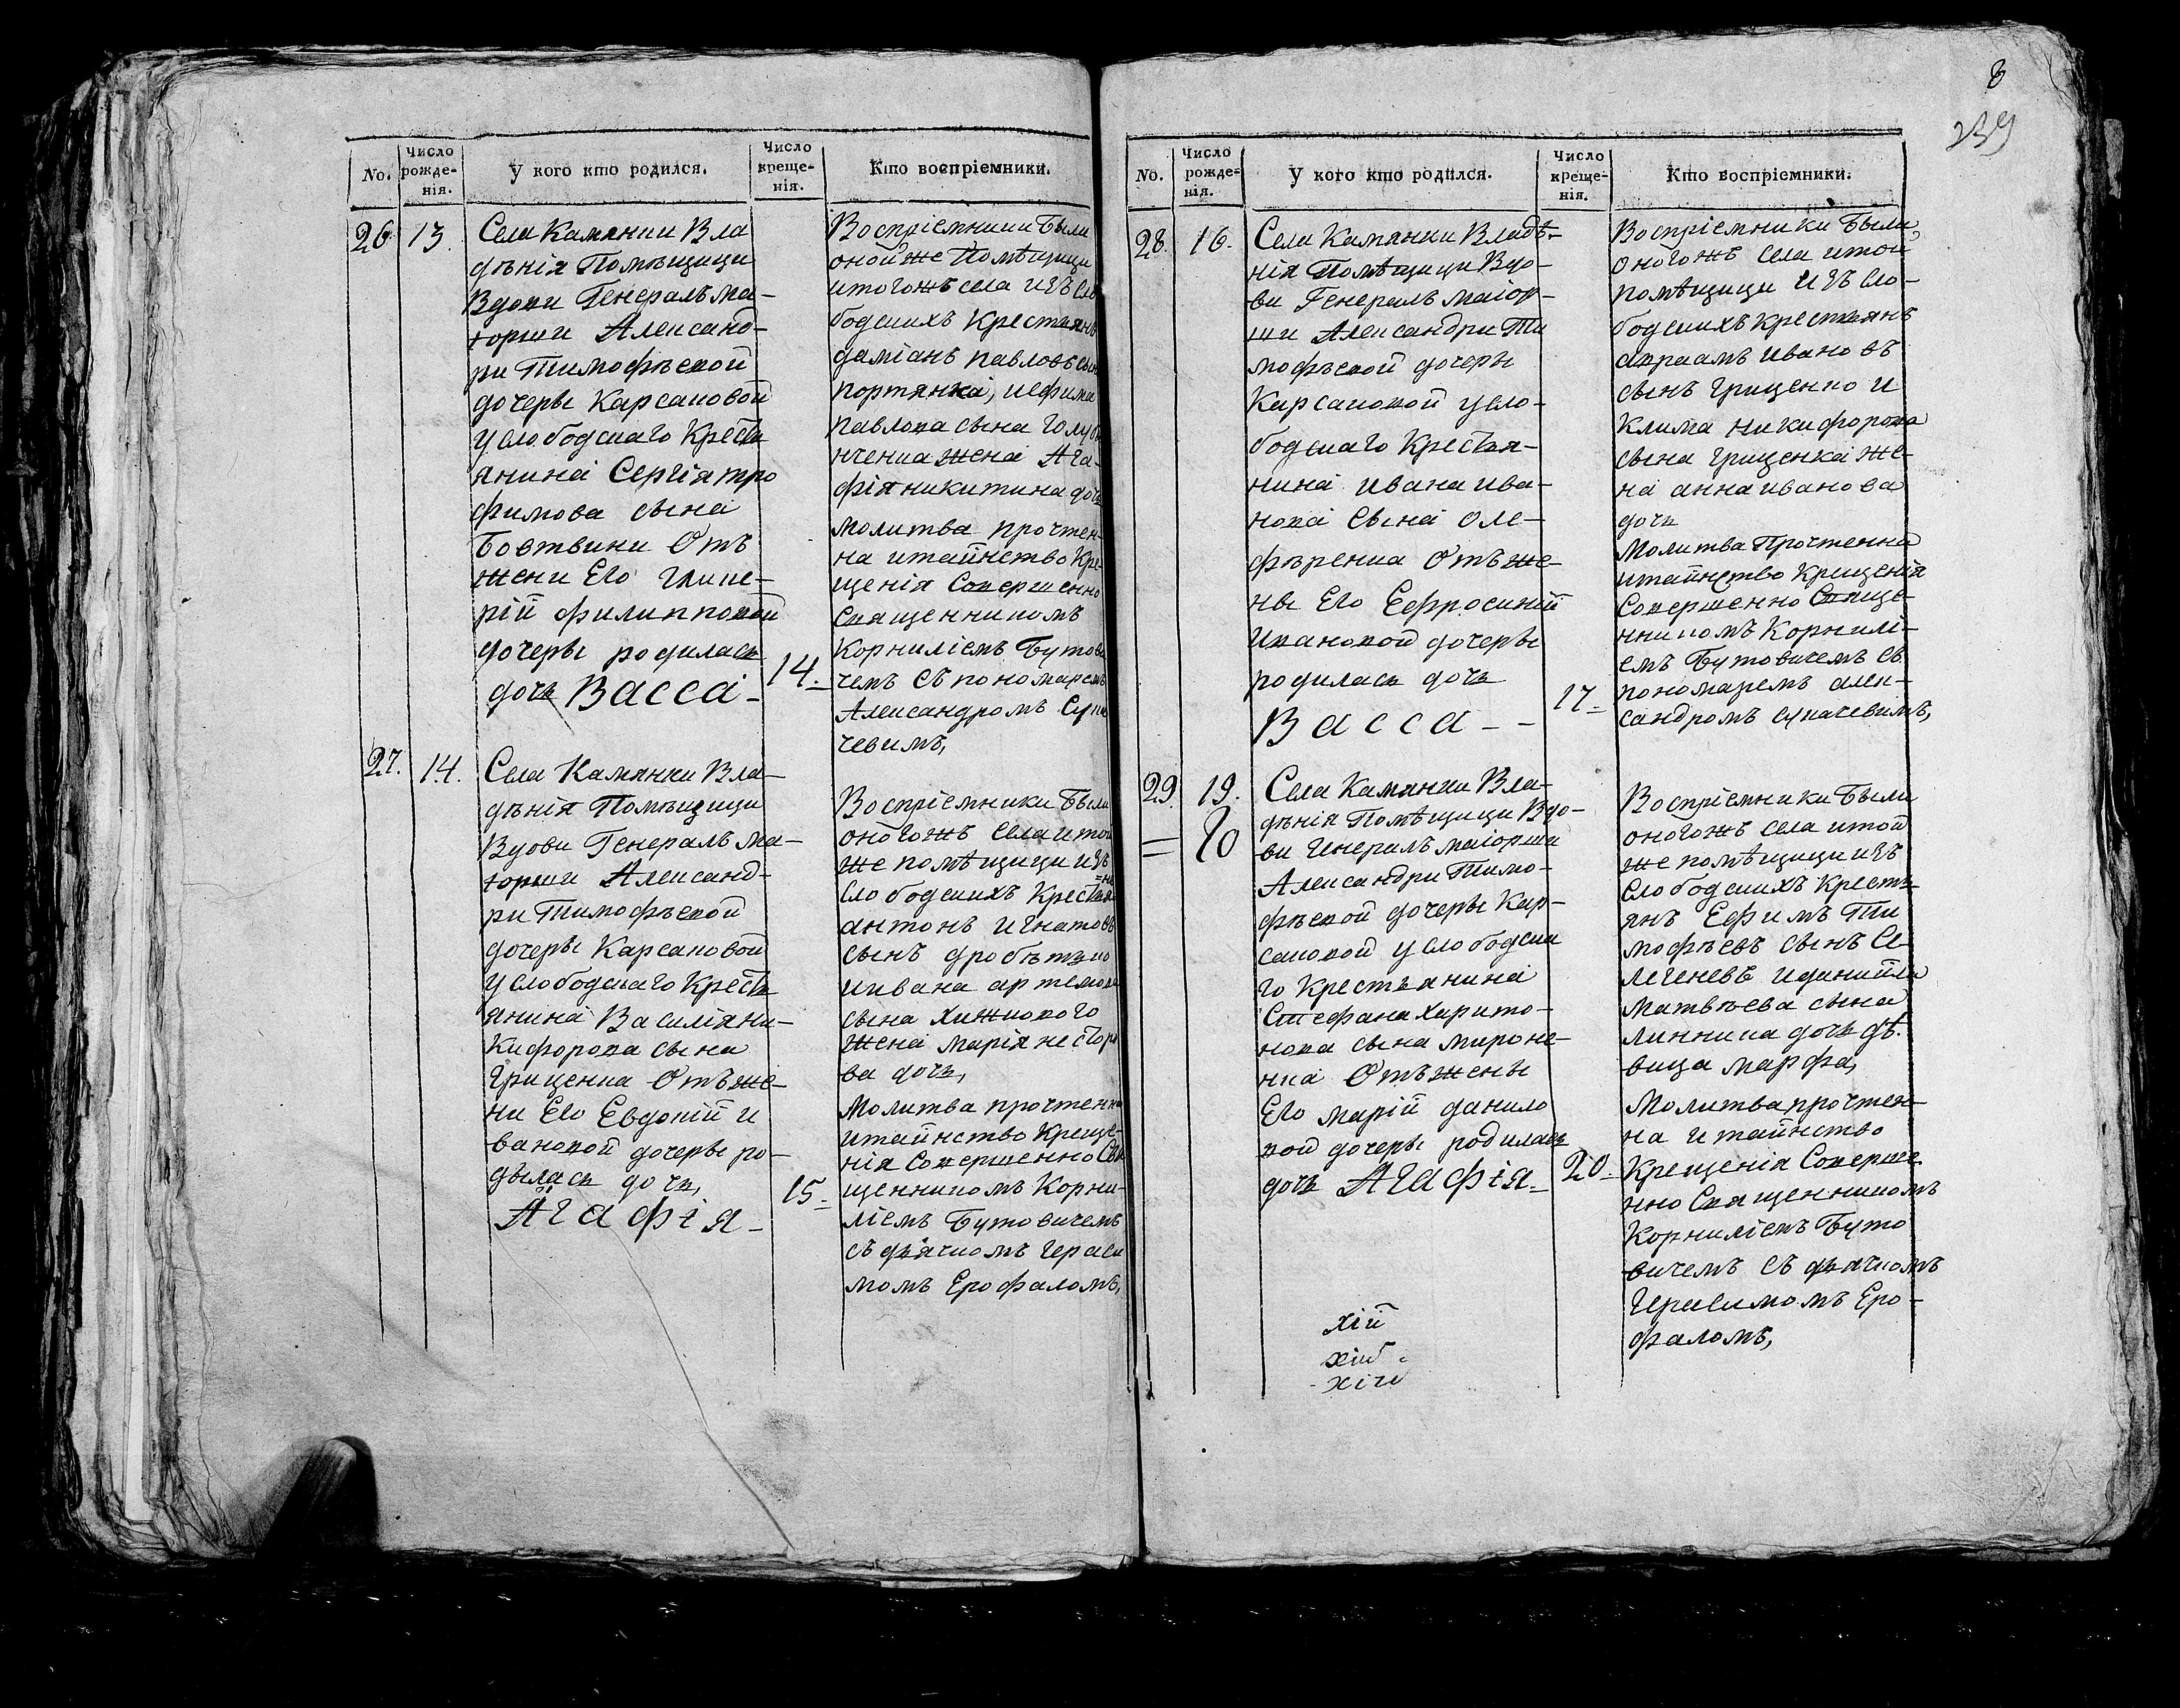 8
239
No.
Число рожденія.
У кого кто родился.
Число крещенія.
Кто воспріемники.
26
13.
Села Камянки Вла
дѣнія Помѣщици
Вдови Генералъ ма-
іорши Александ-
ри Тимофѣевой
дочеры Карсаковой
у слободскаго Кресть
янина Сергія тро
фимова сына
Ботвини Отъ
жени Его Глике-
рій филипповой
дочеры родилась
дочь Васса -
14.
Воспріемники Были
оной же Помѣщици
итогожъ села изъ Сло
бодскихъ Крестьянъ
даміанъ павловъ сынъ
портянка, иефима
павлова сына
жена Ага-
фія никитина дочь
молитва прочтен-
на итайнство Кре-
щенія Совершенно
Священникомъ
Корниліемъ Бутови
чемъ Съ пономаремъ
Александромъ
чевимъ,
27.
14.
Села Камянки Вла-
дѣнія Помѣщици
Вдови Генералъ ма-
іорши Александ-
ри Тимофѣевой
дочеры Карсаковой
у слободскаго Кресть
янина Василія Ни-
кифорова сына
Гриценка Отъ же-
ни Его Евдокій и
вановой дочеры ро-
дылась дочь,
Агафія -
15
Воспріемники Были
оногожъ Села итой
же помѣщици изъ
Слободскихъ Крестья
=нъ
антонъ игнатовъ
сынъ дробѣтько
иивана артемова
сына Хижнокого
жена марія несторо
ва дочь,
Молитва прочтенна
итайнство Креще-
нія Совершенно Свя
щенникомъ Корни-
ліемъ Бутовичемъ
съ дьячкомъ Гераси
момъ Ерофаломъ,
No.
Число рожденія.
У кого кто родился.
Число крещенія.
Кто воспріемники.
28.
16.
Села Камянки Владѣ-
нія Помѣщици Вдо-
ви Генералъ маіор-
ши Александри Ти
мофѣевой дочеры
Карсаковой у сло-
бодскаго Крестья-
нина ивана ива-
нова Сына оле-
фѣренка Отъ же-
ны Его Ефросиній
Ивановой дочеры
родилась дочь
Васса - -
17
Воспріемники Были
оногожъ Села итой
помѣщици изъ Сло-
бодскихъ крестьянъ
авраамъ ивановъ
сынъ гриценко и
Клима никифорова
сына гриценка же-
на анна иванова
дочь
Молитва Прочтенна
итайнство Крещенія
Совершенно Свяще-
нникомъ Корнилі-
емъ Бутовичемъ съ
пономаремъ алек-
сандромъ сукачевимъ,
29.
19.
Села Камянки Вла-
дѣнія Помѣщици Вдо-
ви Генералъ маіорши
Александри Тимо-
фѣевой дочеры Кар-
саковой у слободска
го Крестьянина
Стефана Харито-
нова сына мироне-
нка Отъ жены
Его марій данило
вой дочеры родилась
дочь Агафія -
20
Воспріемники Были
оногожъ Села итой
же помѣщици изъ
Слободскихъ Кресть-
янъ Ефимъ Ти
мофѣевъ сынъ Се-
легеневъ иданійла
матвѣева сына
линника дочь дѣ-
вица марфа,
Молитва прочтен-
на и тайнство
Крещенія Соверше
нно Священникомъ
Корниліемъ Буто
вичемъ Съ дьячкомъ
Герасимомъ Еро-
фаломъ,